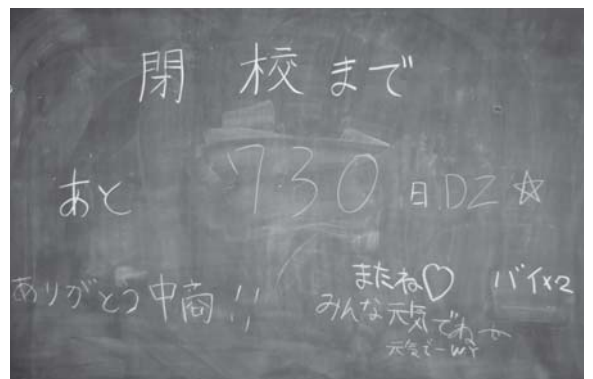 閉校まで
あと 730日DZ☆
ありがとう中商!!
またね♡
バイ×2
みんな元気でね
元気でー